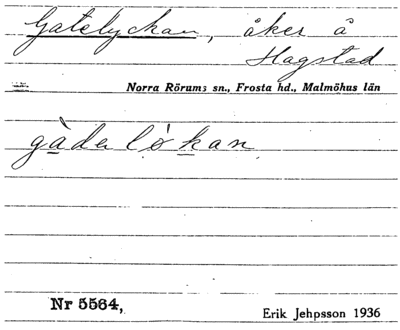 Gatelyckan, åker å
Hagstad
Norra Rörums sn., Frosta hd., Malmöhus län
gàdeløkan
Nr 5564,
Erik Jehpsson 1936